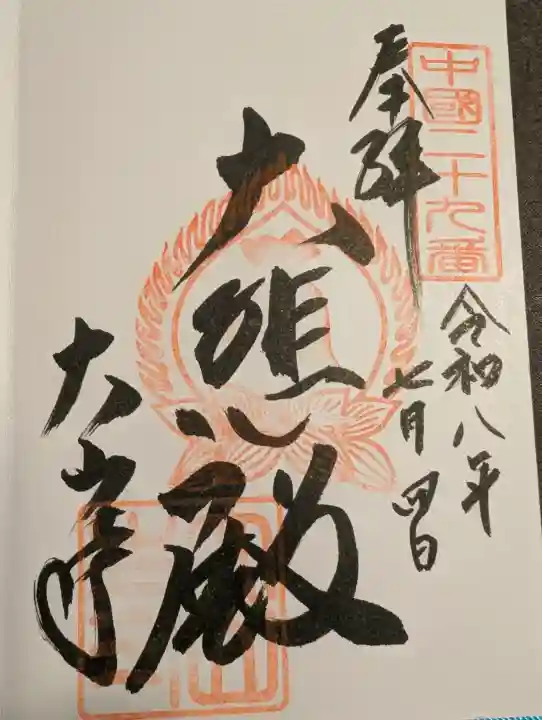 中國二十九番
奉拝
令和八年
七月四日
大悲殿
大山寺